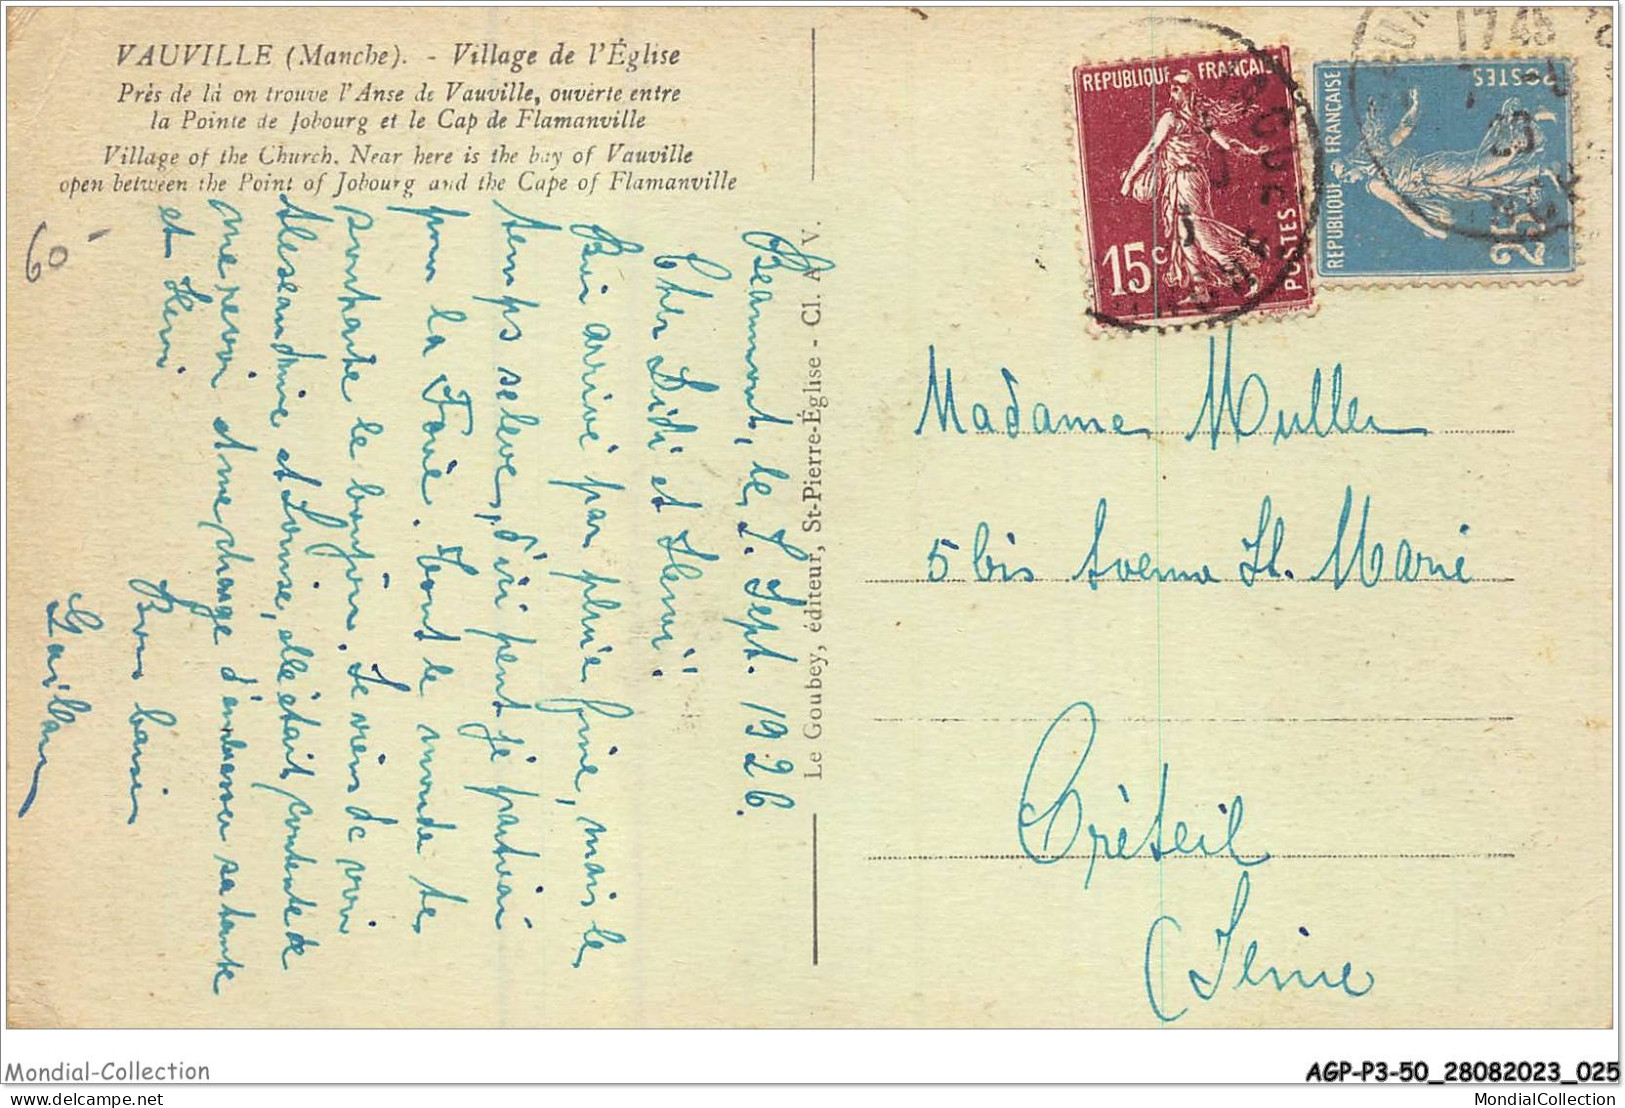 VAUVILLE (Manche). - Village de l'Église
Près de là on trouve l'Anse de Vauville, ouverte entre
la Pointe de Jobourg et le Cap de Flamanville
Village of the Church. Near here is the bay of Vauville
open between the Point of Jobourg and the Cape of Flamanville
60
Beaumont, le 7. Sept. 1926.
Cher Didi et Henri.
Bien arrivé par pluie fine, mais le
temps se leve, d'ici peut je partirai
pour la Foire. Tout le monde te
souhaite le bonjour. Je viens de voir
Alexandrine et Louise, elle était contente de
me revoir et me charge d'embrasser sa tante
et Henri
Bons baisers
Le Goubey, éditeur, St-Pierre-Église - Cl. A. V.
REPUBLIQUE FRANÇAISE
15c
POSTES
REPUBLIQUE FRANÇAISE
25c
POSTES
17 45
Madame Muller
5 bis Avenue St. Marie
Créteil
(Seine
Mondial-Collection
AGP-P3-50_28082023_025
delcampe.net
MondialCollection